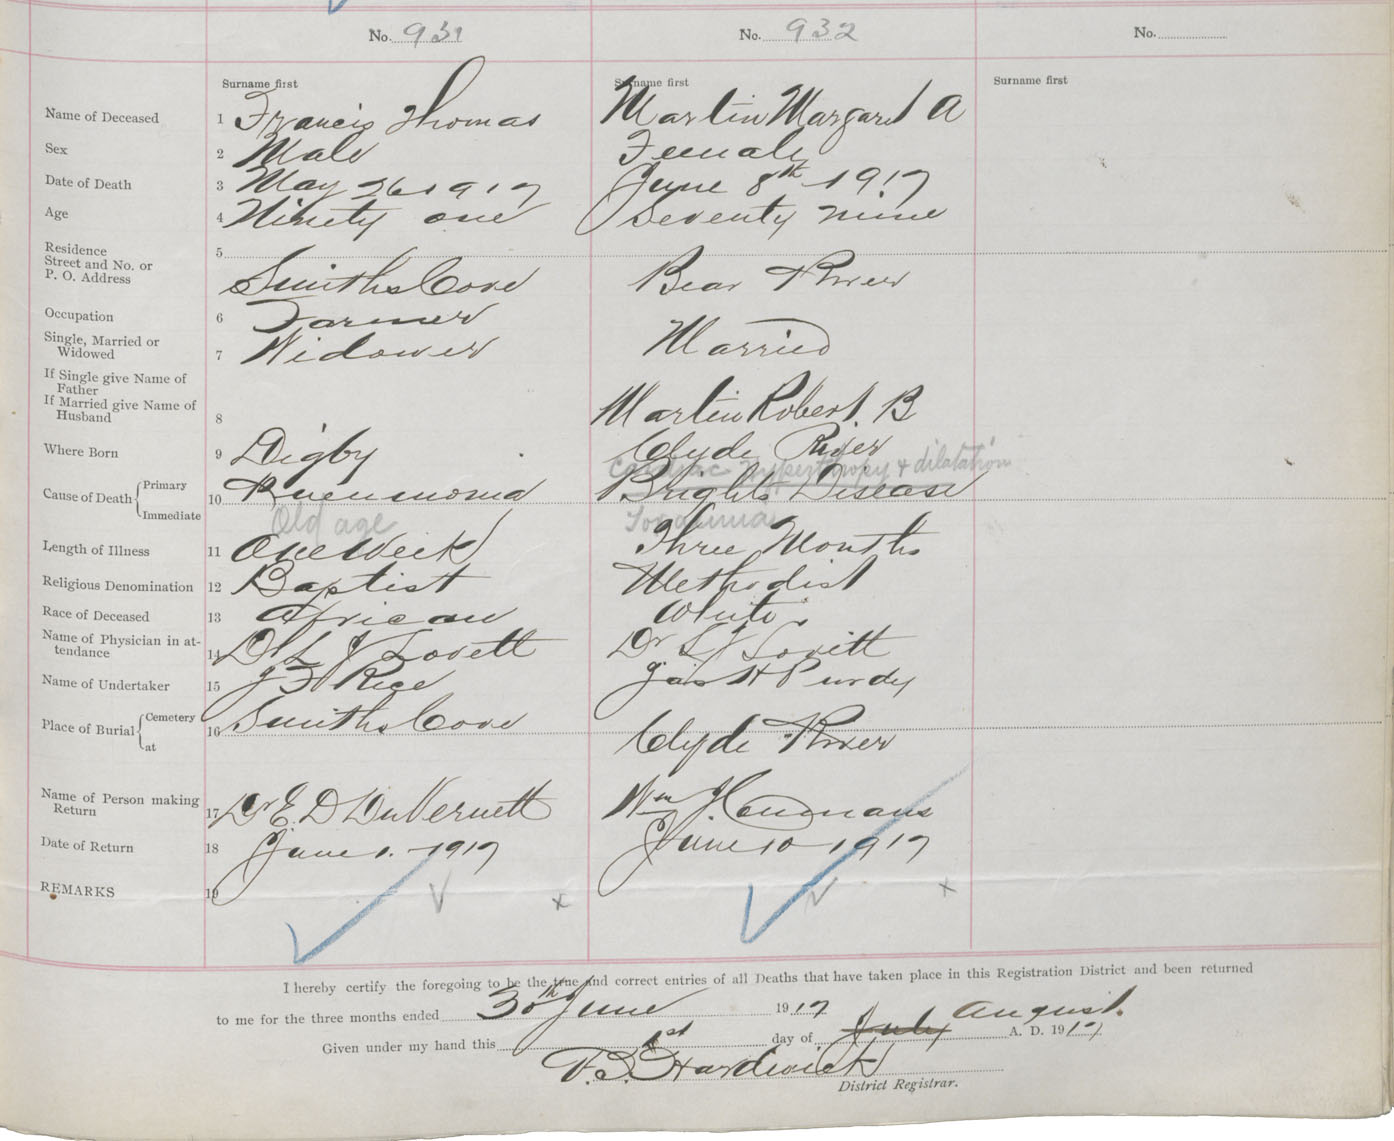 No. 931 No. 932 No.
Surname first Surname first Surname first
Name of Deceased 1 Francis Thomas Martin Margaret A
Sex 2 Male Female
Date of Death 3 May 26 1917 June 8th 1917
Age 4 Ninety one Seventy nine
Residence 5
Street and No. or
P. O. Address Smiths Cove Bear River
Occupation 6 Farmer
Single, Married or
Widowed 7 Widower Married
If Single give Name of
Father
If Married give Name of
Husband 8 Martin Robert. B
Where Born 9 Digby Clyde River
Cardiac Hyperthropy & dilatation
Cause of Death Primary 10 Pneumonia Brights Disease
Immediate Old age Toxaemia
Length of Illness 11 One Week Three Months
Religious Denomination 12 Baptist Methodist
Race of Deceased 13 African White
Name of Physician in at-
tendance 14 Dr L J Lovett Dr L J Lovitt
Name of Undertaker 15 J F Rice Jas H Purdy
Place of Burial Cemetery 16 Smiths Cove
at Clyde River
Name of Person making
Return 17 Dr E. D DuVernett Wm J.
Date of Return 18 June 1. 1917 June 10 1917
REMARKS 19
I hereby certify the foregoing to be the true and correct entries of all Deaths that have taken place in this Registration District and been returned
to me for the three months ended 30th June 1917
Given under my hand this 1st day of July August. A. D. 1917
Hardwick
District Registrar.